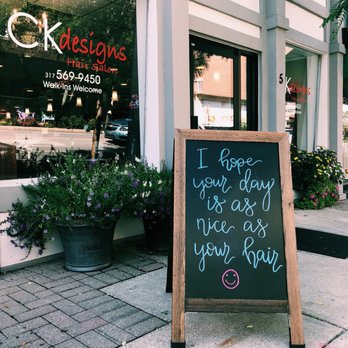 CKdesigns
Hair Salon
317 569-9450
Walk-Ins Welcome
I hope
your day
is as
nice as
your hair